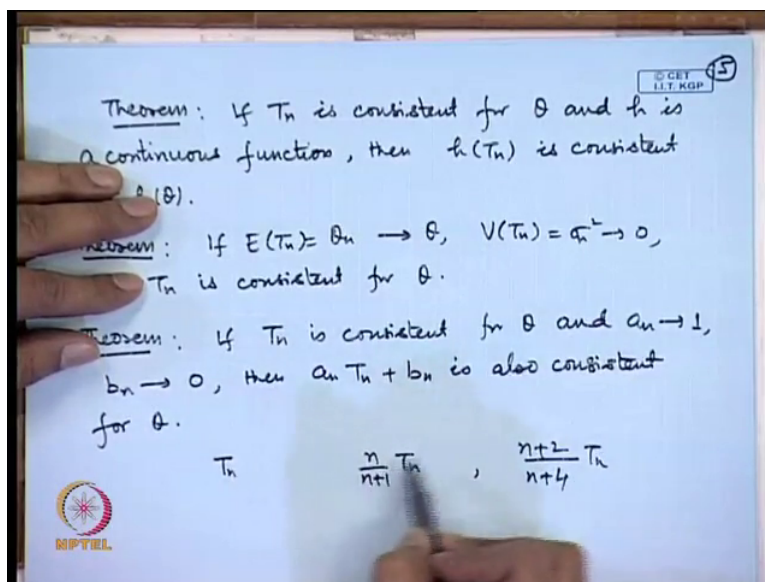 © CET
I.I.T. KGP
5
Theorem: If Tn is consistent for θ and h is
a continuous function, then h(Tn) is consistent
(θ).
Theorem: If E(Tn) = θn → θ, V(Tn) = σn² → 0,
Tn is consistent for θ.
Theorem: If Tn is consistent for θ and an → 1,
bn → 0, then an Tn + bn is also consistent
for θ.
Tn    n/(n+1) Tn , (n+2)/(n+4) Tn
NPTEL